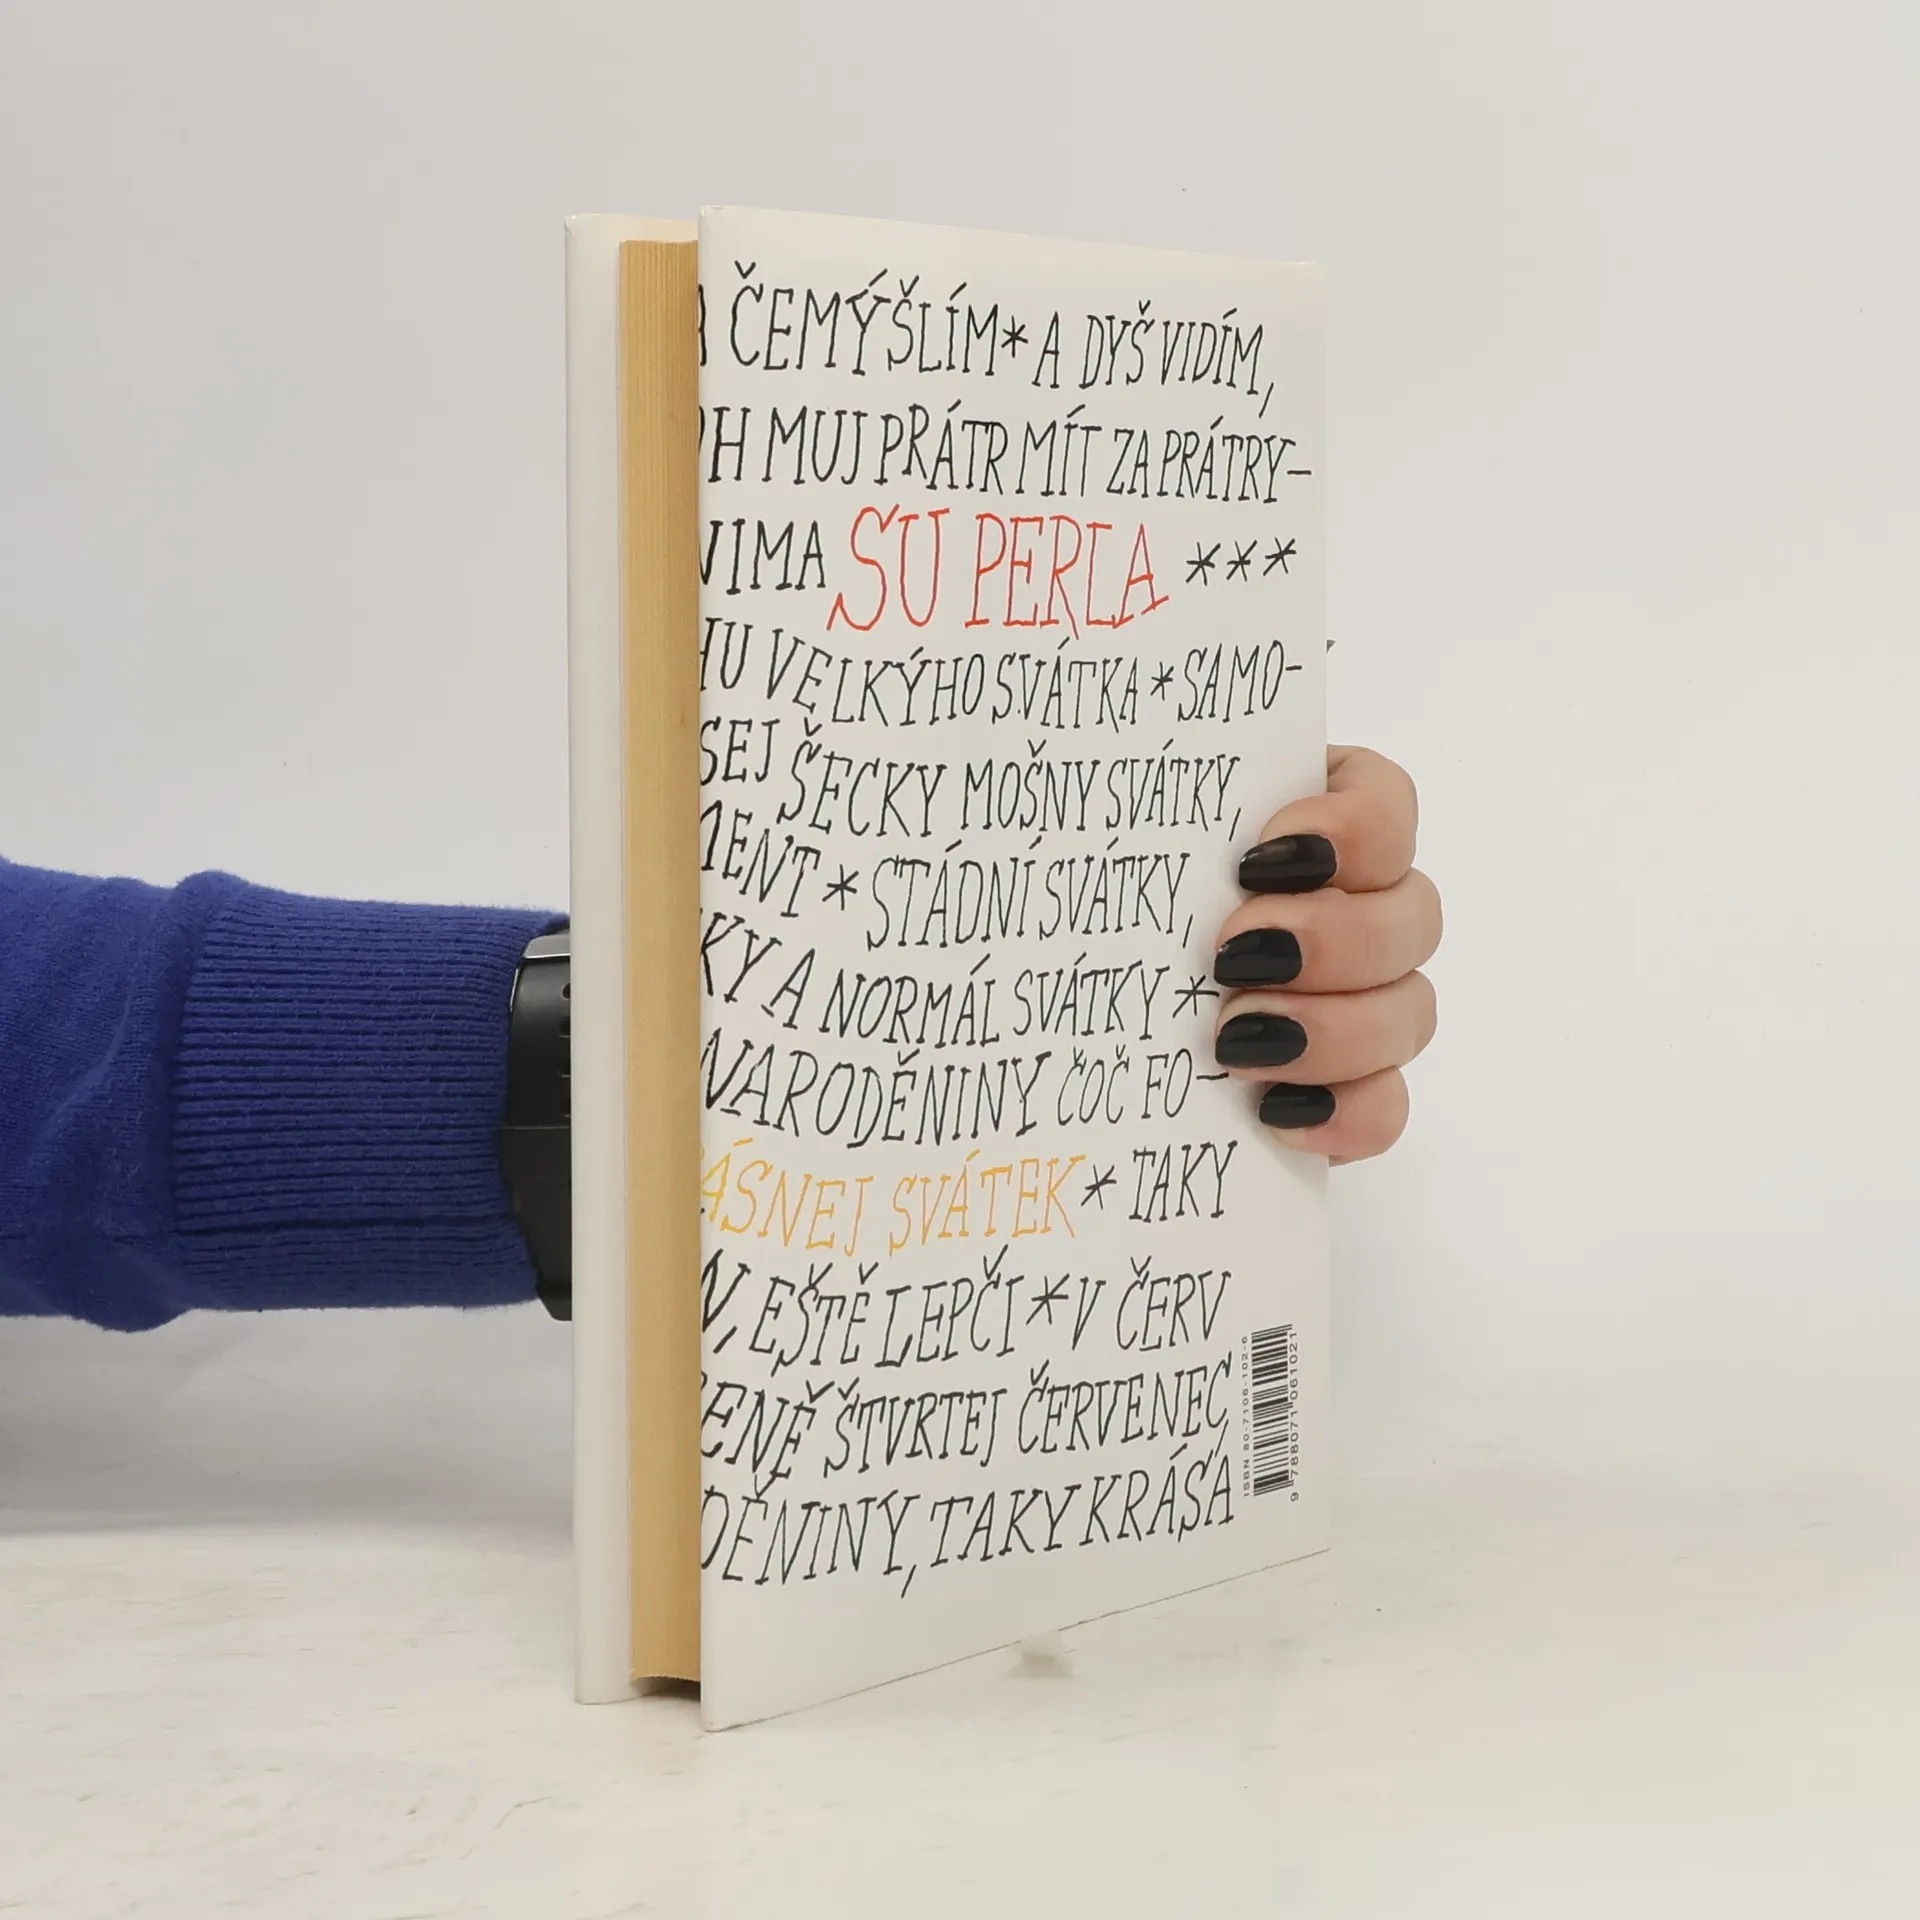 ČEMÝŠLÍM * A DYŠ VIDÍM,
H MUJ PRÁTR MÍT ZA PRÁTRY-
VIMA SU PERLA ***
HU VELKÝHO SVÁTKA * SAMO-
SEJ ŠECKY MOŠNY SVÁTKY,
MENT * STÁDNÍ SVÁTKY,
KY A NORMÁL SVÁTKY *
NARODĚNINY ČOČ FO-
ÁSNEJ SVÁTEK * TAKY
N, EŠTĚ LEPČI * V ČERV
ENĚ ŠTVRTEJ ČERVENEC,
DĚNINY, TAKY KRÁSA
ISBN 80-7106-102-6
9 788071 061021